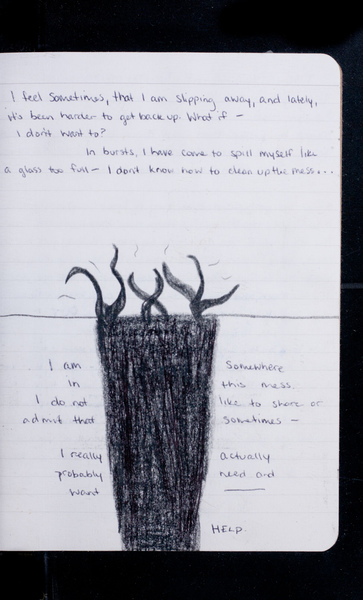 I feel sometimes, that I am slipping away, and lately,
it's been harder to get back up. What if —
I don't want to?
In bursts, I have come to spill myself like
a glass too full — I don't know how to clean up the mess...
I am somewhere
in this mess.
I do not like to share or
admit that sometimes —
I really actually
probably need and
want ____
HELP.